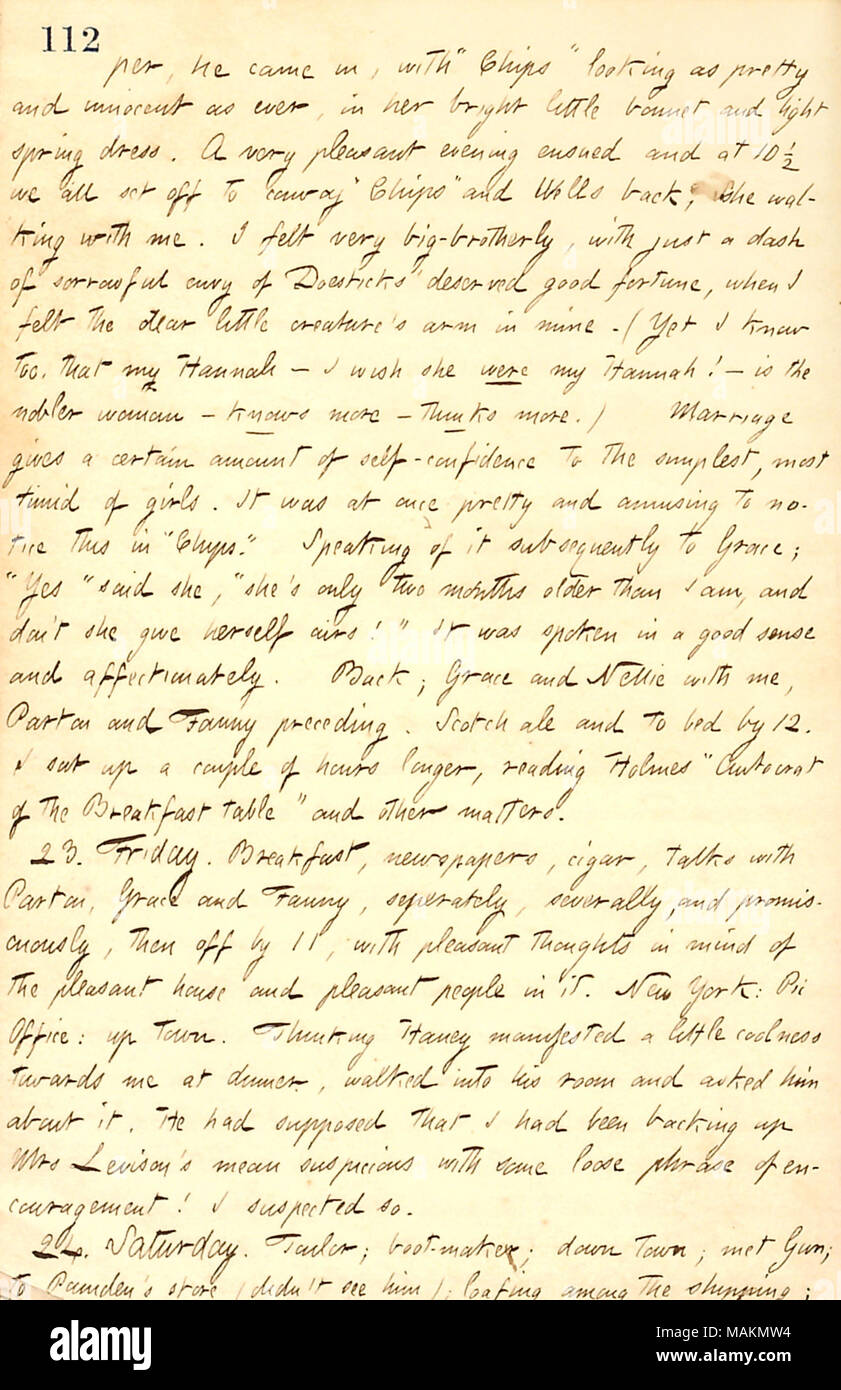 112
per, he came in, with "Chips" looking as pretty
and innocent as ever, in her bright little bonnet and light
spring dress. A very pleasant evening ensued and at 10 ½
we all set off to convoy "Chips" and Wells back; she wal-
king with me. I felt very big-brotherly, with just a dash
of sorrowful envy of Doesticks' deserved good fortune, when I
felt the dear little creature's arm in mine. (Yet I know
too, that my Hannah — I wish she were my Hannah! — is the
nobler woman — knows more — thinks more.) Marriage
gives a certain amount of self-confidence to the simplest, most
timid of girls. It was at once pretty and amusing to no-
tice this in "Chips." Speaking of it subsequently to Grace;
"Yes" said she, "she's only two months older than I am, and
don't she give herself airs!" It was spoken in a good sense
and affectionately. Back; Grace and Nellie with me,
Parton and Fanny preceding. Scotch ale and to bed by 12.
I sat up a couple of hours longer, reading Holmes "Autocrat
of the Breakfast table" and other matters.
23. Friday. Breakfast, newspapers, cigar, talks with
Parton, Grace and Fanny, seperately, severally, and promis-
cuously, then off by 11, with pleasant thoughts in mind of
the pleasant house and pleasant people in it. New York: Pic
Office: up town. Thinking Haney manifested a little coolness
towards me at dinner, walked into his room and asked him
about it. He had supposed that I had been backing up
Mrs Levison's mean suspicions with some loose phrase of en-
couragement! I suspected so.
24. Saturday. Tailor; boot-maker; down town; met Gun;
to Pounden's store (didn't see him); loafing among the shipping;
alamy
Image ID: MAKMW4
www.alamy.com